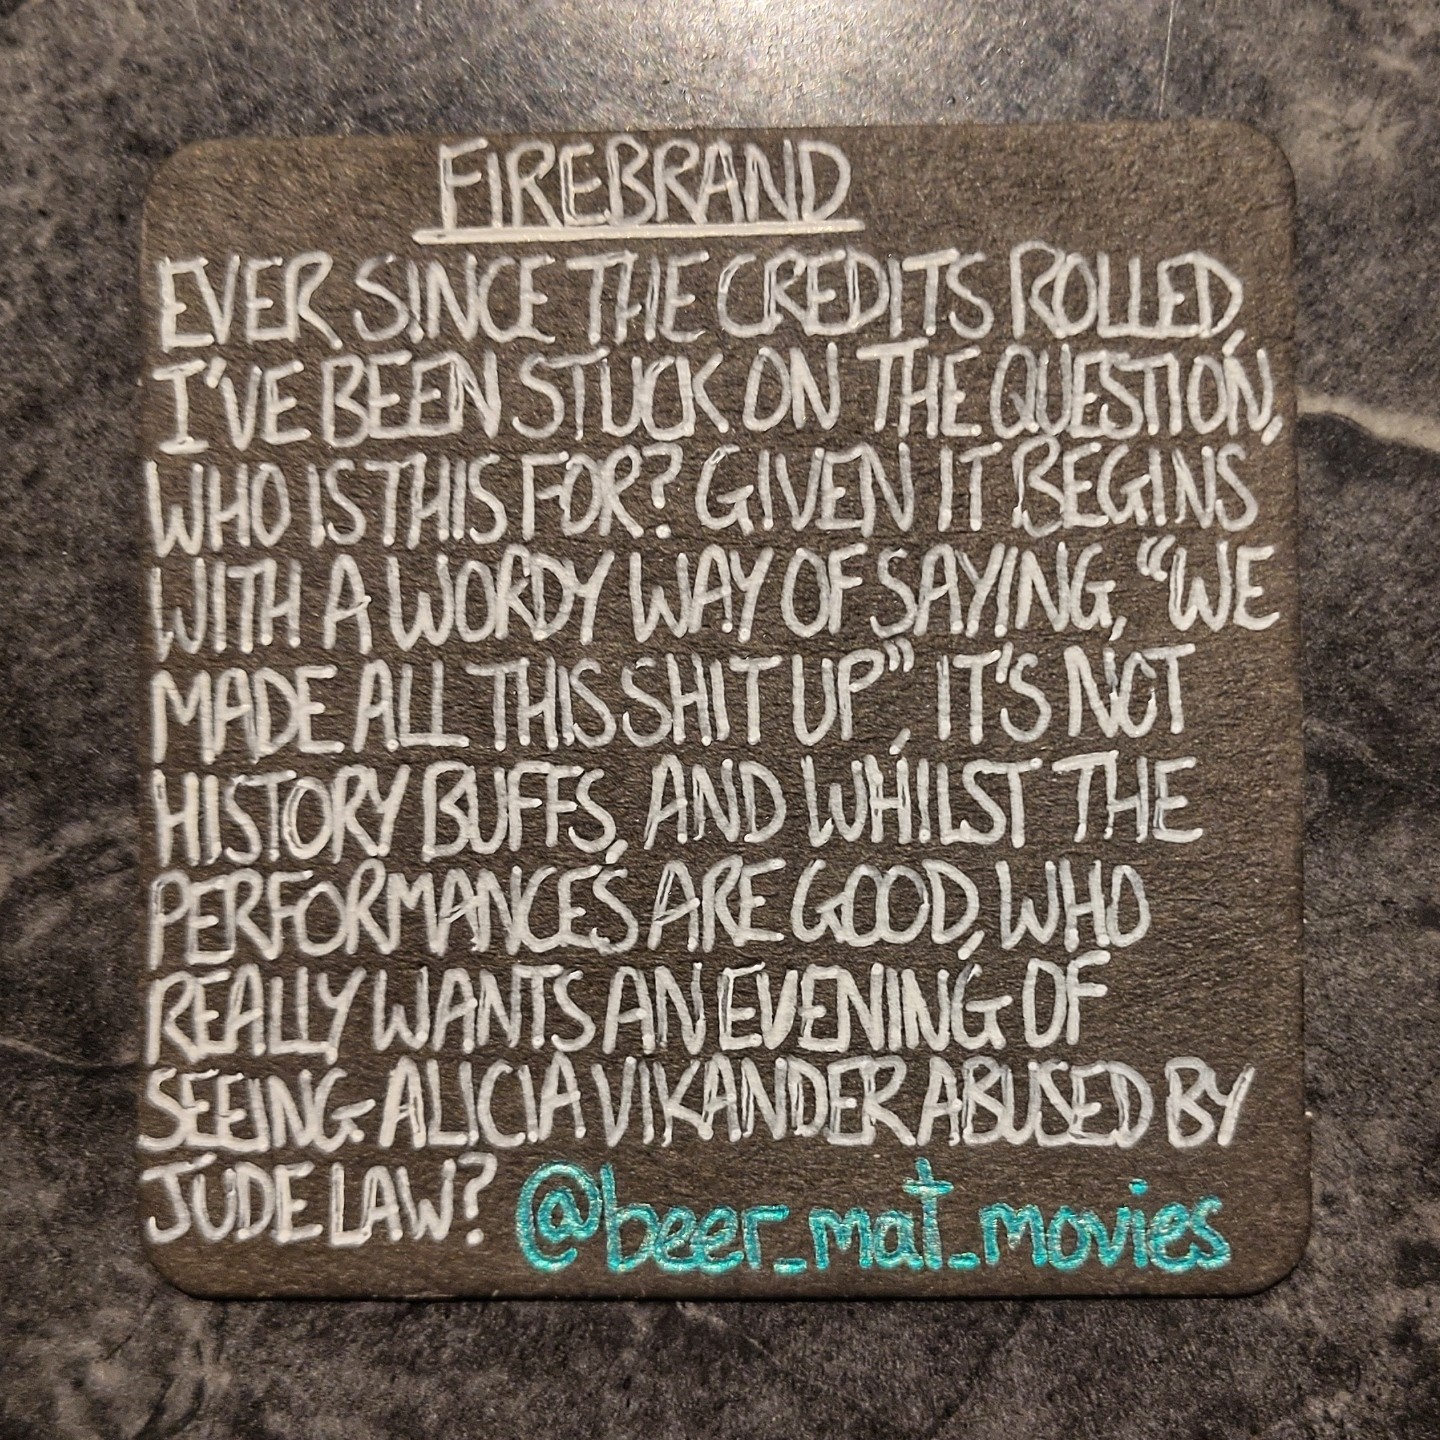 FIREBRAND
EVER SINCE THE CREDITS ROLLED,
I'VE BEEN STUCK ON THE QUESTION,
WHO IS THIS FOR? GIVEN IT BEGINS
WITH A WORDY WAY OF SAYING, "WE
MADE ALL THIS SHIT UP", IT'S NOT
HISTORY BUFFS, AND WHILST THE
PERFORMANCES ARE GOOD, WHO
REALLY WANTS AN EVENING OF
SEEING ALICIA VIKANDER ABUSED BY
JUDE LAW? @beer_mat_movies